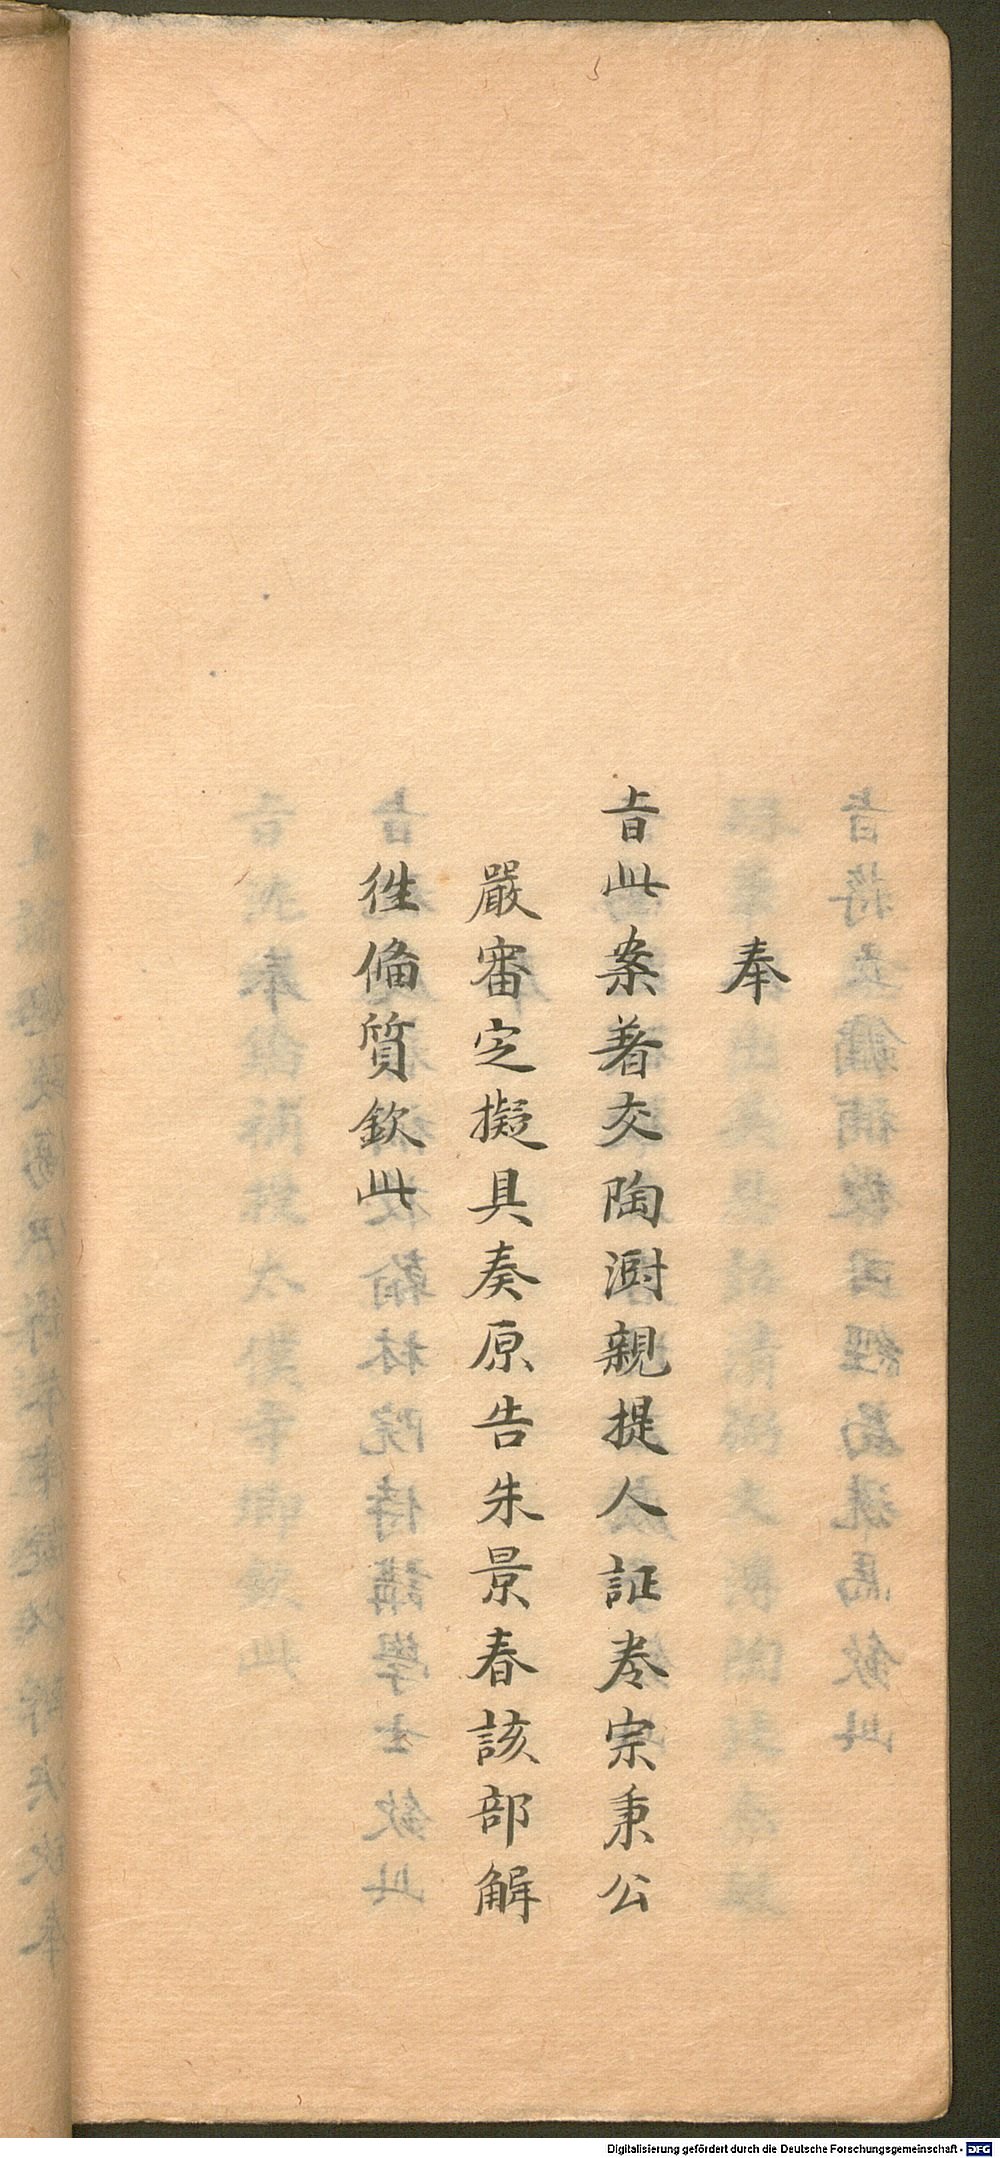 奉
旨此案著交陶澍親提人証卷宗秉公
嚴審定擬具奏原告朱景春該部解
徃俻質欽此
Digitalisierung gefördert durch die Deutsche Forschungsgemeinschaft - DFG